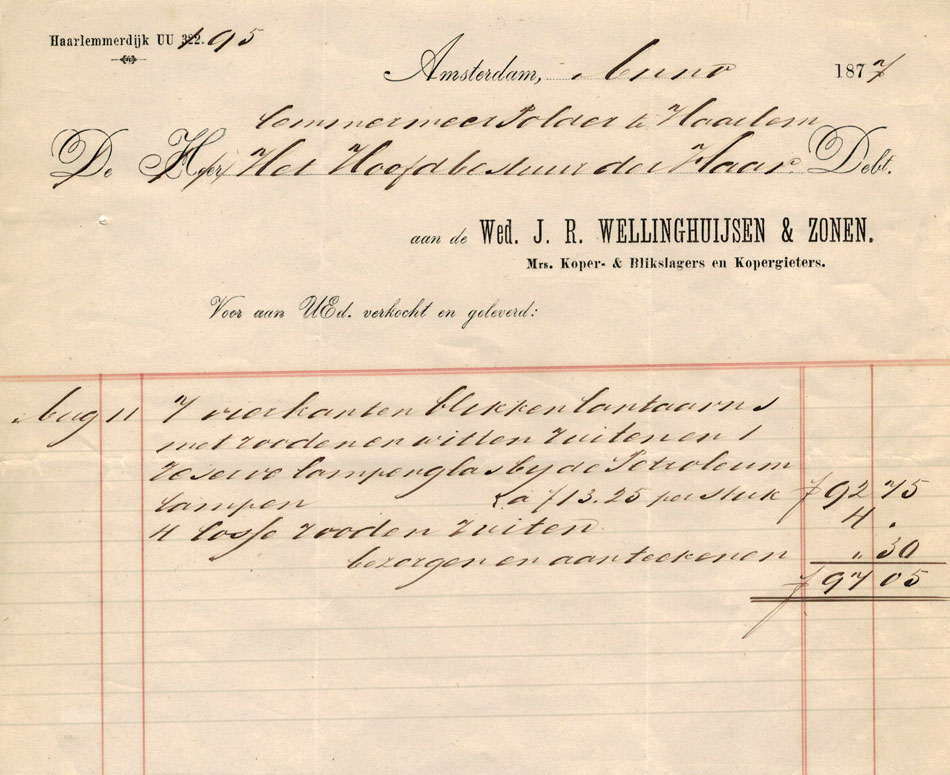 Haarlemmerdijk UU 322. 95
Amsterdam, Anno 1877
lemmermeer Polder te Haarlem
De Heer Het Hoofdbestuur der Haar Debt.
aan de Wed. J. R. WELLINGHUIJSEN & ZONEN.
Mrs. Koper- & Blikslagers en Kopergieters.
Voor aan UEd. verkocht en geleverd:
Aug 11 7 vierkanten blikken lantaarns
met rooden en witten ruiten en 1
reserve lampenglas by de Petroleum
lampen à ƒ 13.25 per stuk ƒ 92 75
4 losse rooden ruiten 4 .
bezorgen en aanteekenen „ 30
ƒ 97 05